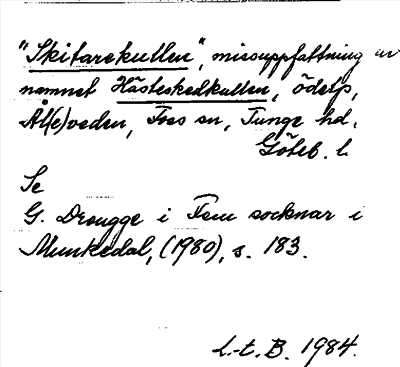 "Skitarekullen", missuppfattning av
namnet Hästeskedkullen, ödetp,
Ål(e)veden, Foss sn, Tunge hd.
Göteb. l.
Se
G. Drougge i Fem socknar i
Munkedal, (1980), s. 183.
L.-t. B. 1984.